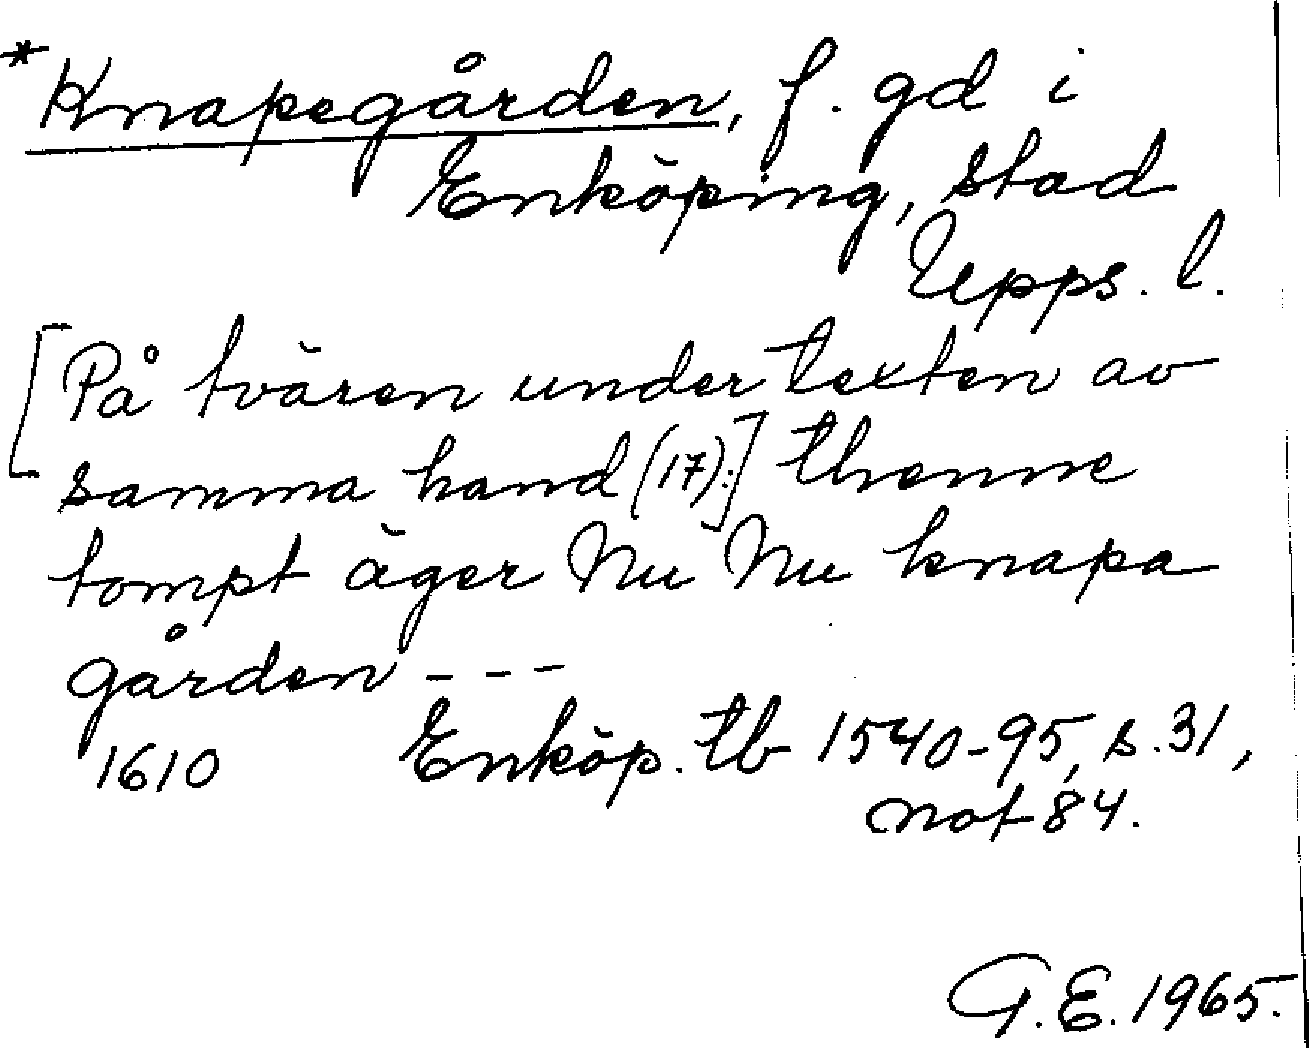 *Knapegården, f. gd i
Enköping, stad
Upps. l.
[På tvären under texten av
samma hand (17):] thenne
tompt äger Nu Nu knapa
gården - - -
1610 Enköp. tb 1540-95, s. 31,
not 84.
G. E. 1965.